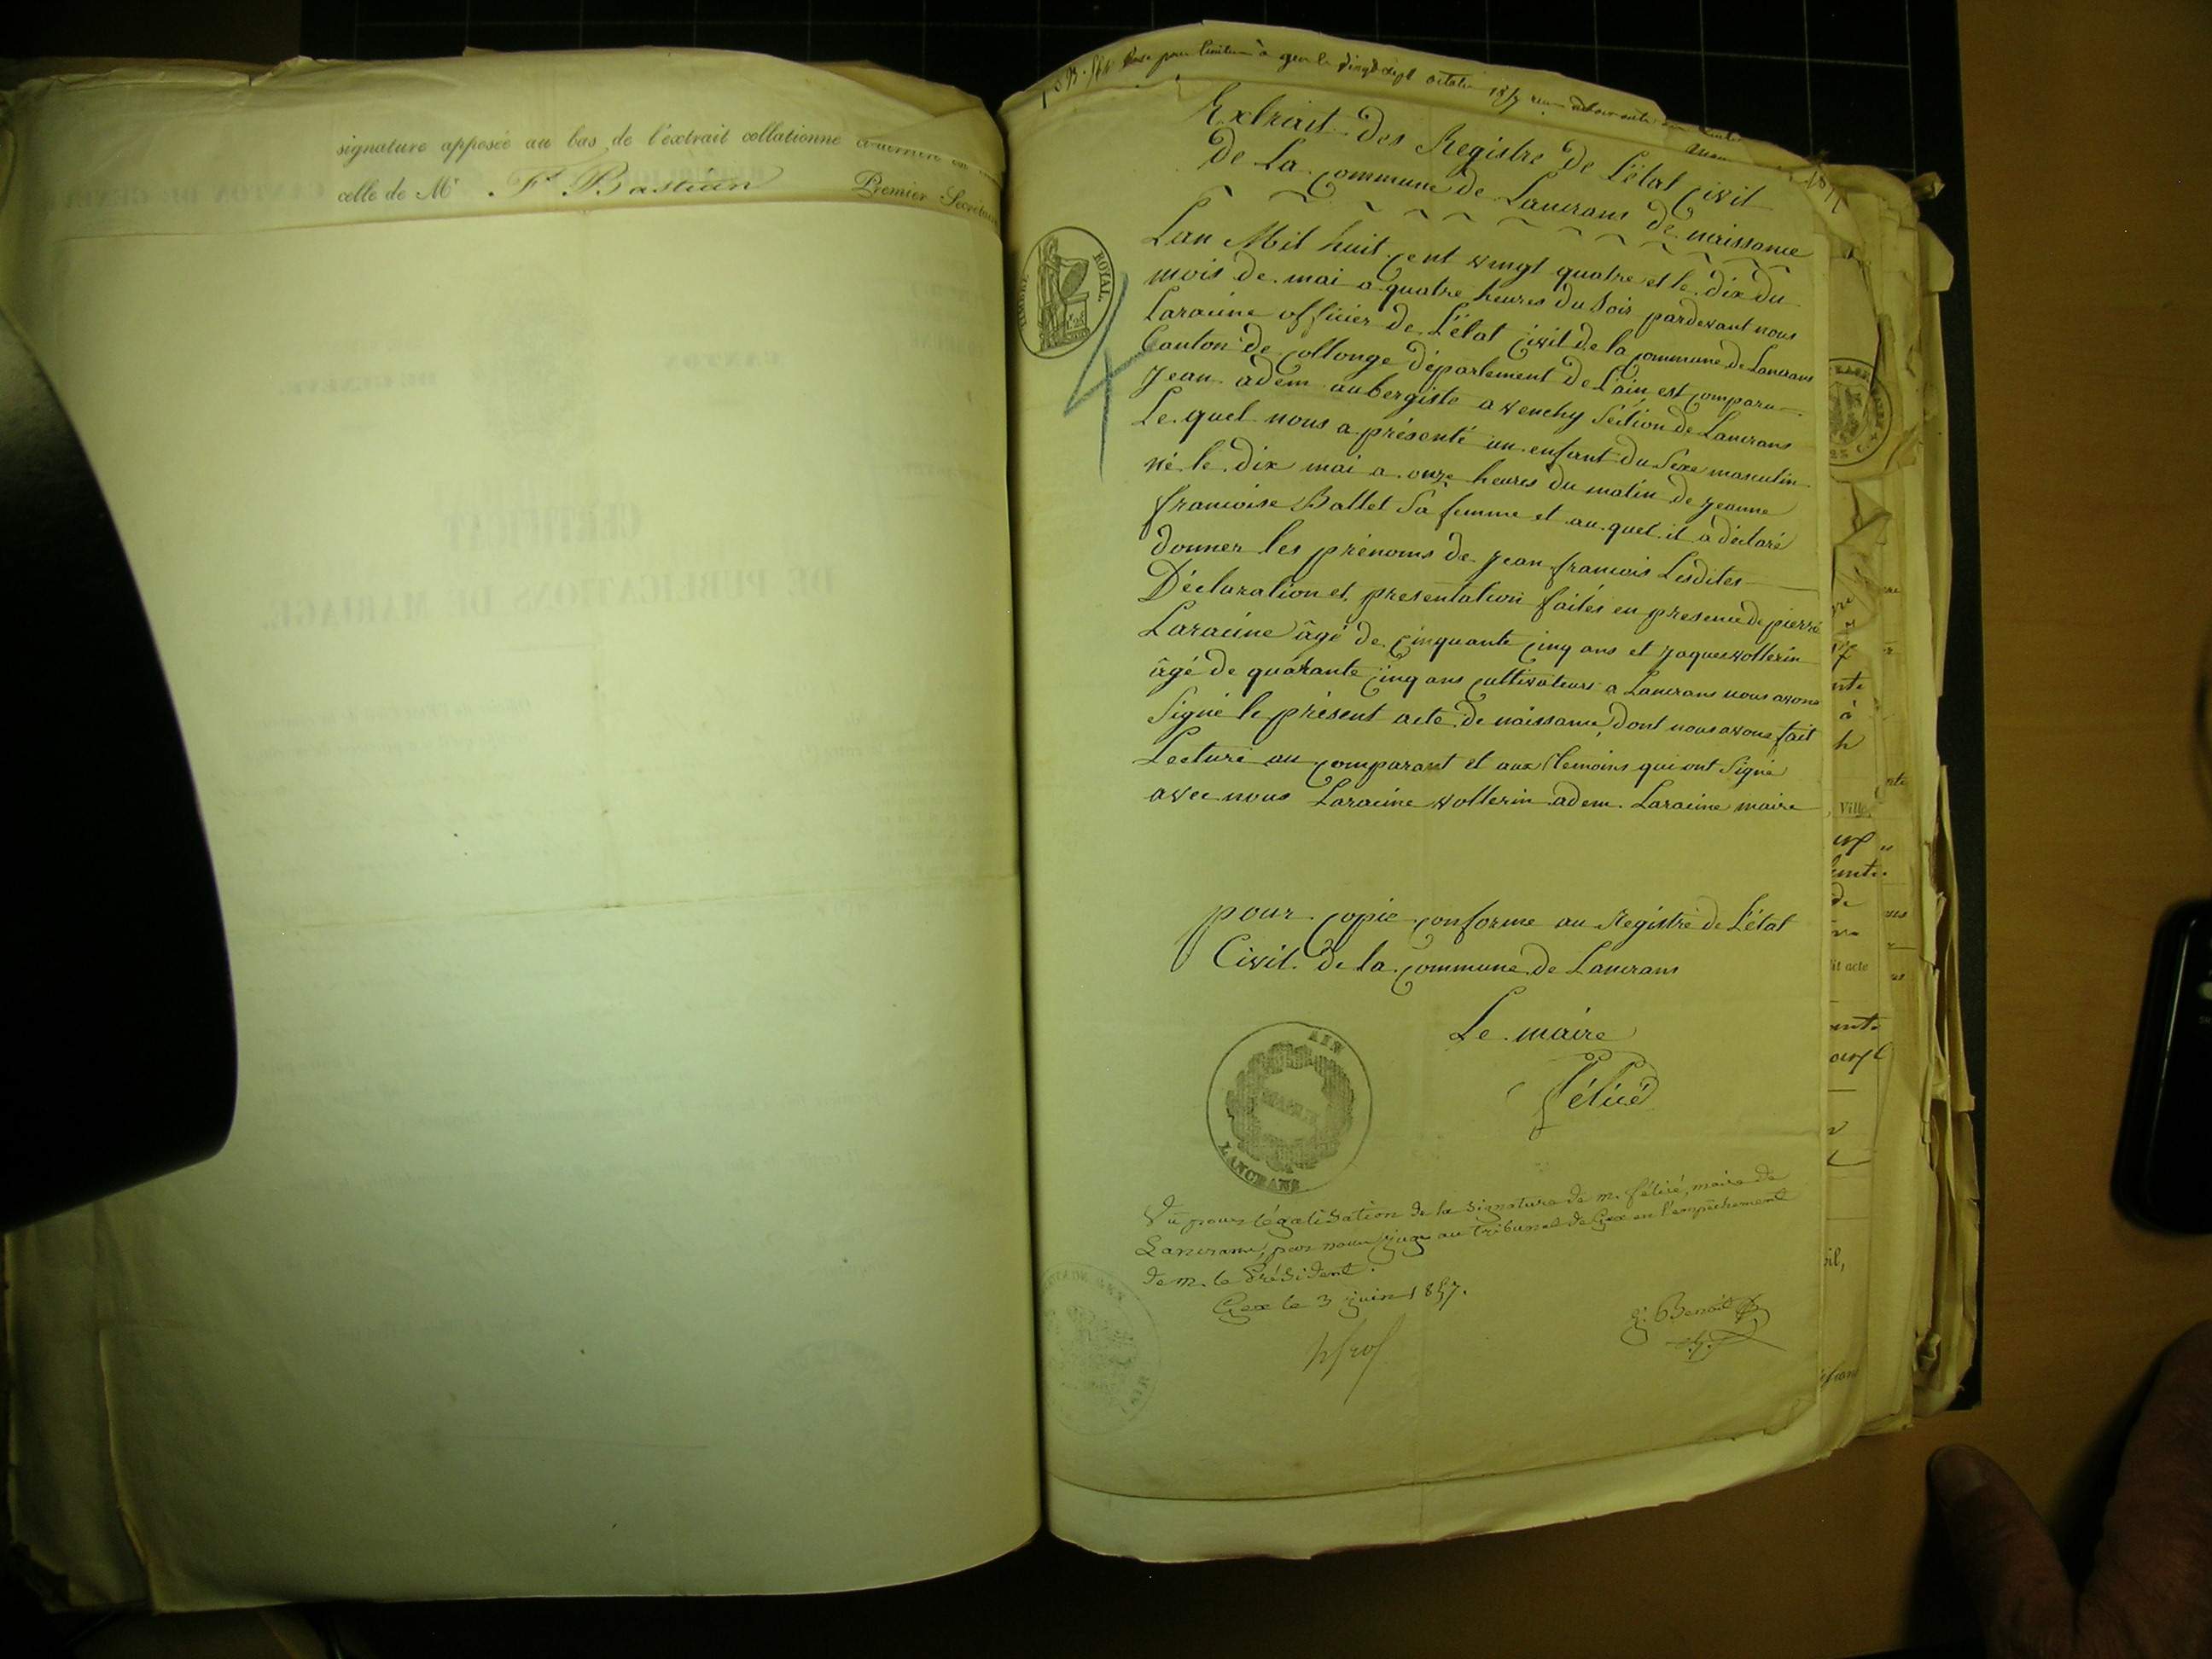 signature apposée au bas de l'extrait collationné
celle de Mr F. Bastian Premier Secrétaire
Extrait des Registre de L'état civil
de La commune de Lancrans de naissance
Lan Mil huit cent vingt quatre et le dix du
mois de mai a quatre heures du Soir pardevant nous
Laracine officier de L'état civil de la commune de Lancrans
Canton de Collonge département de L'ain est comparu
Jean adem aubergiste a venchy Séction de Lancrans
Le quel nous a présenté un enfant du Sexe masculin
né le dix mai a onze heures du matin de jeanne
francoise Ballet Sa femme et au quel il a déclaré
donner les prénoms de jean francois Lesdites
Déclaration et présentation faites en presence de pierre
Laracine âgé de cinquante cinq ans et jaques vollerin
âgé de quarante cinq ans cultivateurs a Lancrans nous avons
Signé le présent acte de naissance, dont nous avons fait
Lecture au comparant et aux témoins qui ont Signé
avec nous Laracine vollerin adem Laracine maire
pour copie conforme au Registre de L'état
Civil de la commune de Lancrans
Le maire
félicé
Vu pour légalisation de la signature de m. félicé, maire de
Lancrans, par nous juge au tribunal de Gex en l'empêchement
de m. le Président.
Gex le 3 juin 1857.
Benoit
TIMBRE ROYAL
AIN
LANCRANS